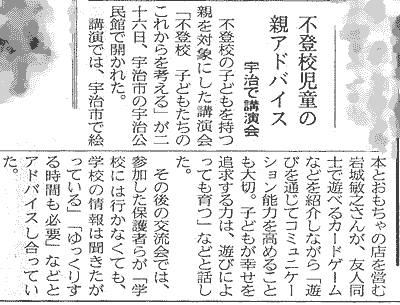 不登校児童の
親アドバイス
宇治で講演会
不登校の子どもを持つ
親を対象にした講演会
「不登校 子どもたちの
これからを考える」が二
十六日、宇治市の宇治公
民館で開かれた。
講演では、宇治市で絵
本とおもちゃの店を営む
岩城敏之さんが、友人同
士で遊べるカードゲーム
などを紹介しながら「遊
びを通じてコミュニケー
ション能力を高めること
も大切。子どもが幸せを
追求する力は、遊びによ
っても育つ」などと話し
た。
その後の交流会では、
参加した保護者らが「学
校には行かなくても、
学校の情報は聞きたが
っている」「ゆっくりす
る時間も必要」などと
アドバイスし合ってい
た。